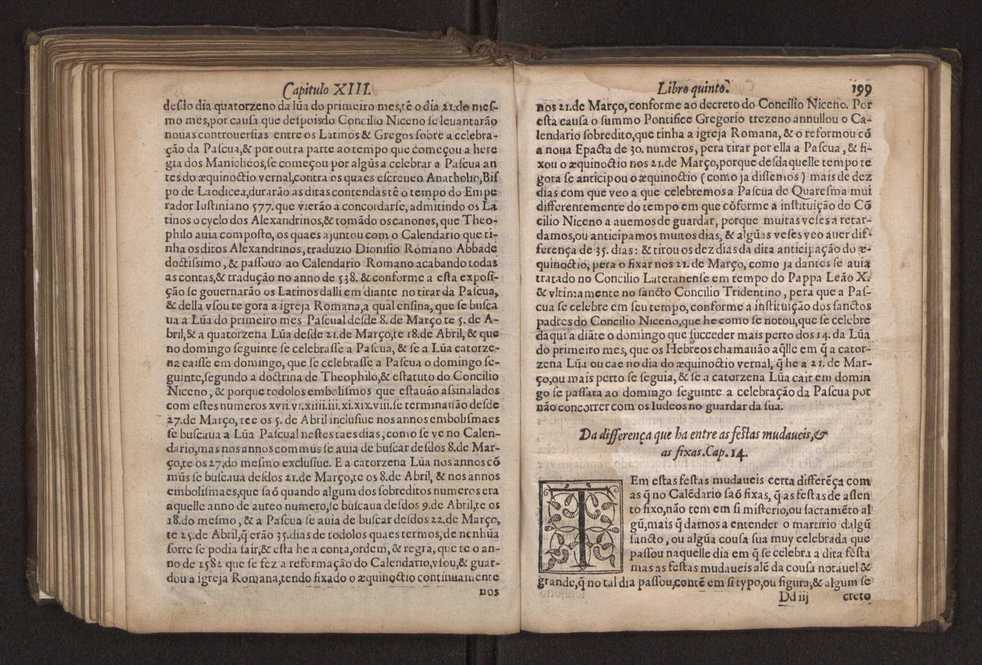 Capitulo XIII.
desdo dia quatorzeno da lũa do primeiro mes, tè o dia 21. do mes-
mo mes, por causa que despois do Concilio Niceno se leuantarão
nouas controuersias entre os Latinos & Gregos sobre a celebra-
ção da Pascua, & por outra parte ao tempo que começou a here
gia dos Manicheos, se começou por algũs a celebrar a Pascua an
tes do æquinoctio vernal, contra os quaes escreueo Anatholio, Bis
po de Laodicea, durarão as ditas contendas tê o tempo do Empe
rador Iustiniano 577. que vierão a concordarse, admitindo os La
tinos o cyclo dos Alexandrinos, & tomãdo os canones, que Theo-
philo auia composto, os quaes ajuntou com o Calendario que ti-
nha os ditos Alexandrinos, traduzio Dionisio Romano Abbade
doctissimo, & passouo ao Calendario Romano acabando todas
as contas, & tradução no anno de 538. & conforme a esta exposi-
ção se gouernarão os Latinos dalli em diante no tirar da Pascua,
& della vsou te gora a igreja Romana, a qual ensina, que se busca
ua a Lũa do primeiro mes Pascual desde 8. de Março te 5. de A-
bril, & a quatorzena Lũa desde 21. de Março, te 18. de Abril, & que
no domingo seguinte se celebrasse a Pascua, & se a Lũa catorze-
na caisse em domingo, que se celebrasse a Pascua o domingo se-
guinte, segundo a doctrina de Theophilo, & estatuto do Concilio
Niceno, & porque todolos embolismos que estauão assinalados
com estes numeros xvii. vi. xiiii. iii. xi. xix. viii. se terminauão desde
27. de Março, te os 5. de Abril inclusiue nos annos embolismaes
se buscaua a Lũa Pascual nestes taes dias, como se ve no Calen-
dario, mas nos annos commũs se auia de buscar desdos 8. de Mar-
ço, te os 27. do mesmo exclusiue. E a catorzena Lũa nos annos cõ
mũs se buscaua desdos 21. de Março, te os 8. de Abril, & nos annos
embolismaes, que saõ quando algum dos sobreditos numeros era
aquelle anno de aureo numero, se buscaua desdos 9. de Abril, te os
18. do mesmo, & a Pascua se auia de buscar desdos 22. de Março,
te 25. de Abril, q̃ erão 35. dias de todolos quaes termos, de nenhũa
sorte se podia sair, & esta he a conta, ordem, & regra, que te o an-
no de 1582 que se fez a reformação do Calendario, vsou, & guar-
dou a igreja Romana, tendo fixado o æquinoctio continuamente
nos
Libro quinto. 199
nos 21. de Março, conforme ao decreto do Concilio Niceno. Por
esta causa o summo Pontifice Gregorio trezeno annullou o Ca-
lendario sobredito, que tinha a igreja Romana, & o reformou cõ
a noua Epacta de 30. numeros, pera tirar por ella a Pascua, & fi-
xou o æquinoctio nos 21. de Março, porque desdaquelle tempo te
gora se anticipou o æquinoctio (como ja dissemos) mais de dez
dias com que veo a que celebremos a Pascua de Quaresma mui
differentemente do tempo em que cõforme a instituição do Cõ
cilio Niceno a auemos de guardar, porque muitas veses a retar-
damos, ou anticipamos muitos dias, & algũas veses veo auer dif-
ferença de 35. dias: & tirou os dez dias da dita anticipação do æ-
quinoctio, pera o fixar nos 21. de Março, como ja dantes se auia
tratado no Concilio Lateranense em tempo do Pappa Leão X.
& vltimamente no sancto Concilio Tridentino, pera que a Pas-
cua se celebre em seu tempo, conforme a instituição dos sanctos
padres do Concilio Niceno, que he como se notou, que se celebre
daqui a diãte o domingo que succeder mais perto dos 14. da Lũa
do primeiro mes, que os Hebreos chamauão aq̃lle em q̃ a cator-
zena Lũa ou cae no dia do æquinoctio vernal, q̃ he a 21. de Mar-
ço, ou mais perto se seguia, & se a catorzena Lũa cair em domin
go se passara ao domingo seguinte a celebração da Pascua por
não concorrer com os Iudeos no guardar da sua.
Da differença que ha entre as festas mudaueis, &
as fixas. Cap. 14.
TEm estas festas mudaueis certa differẽça com
as q̃ no Calẽdario saõ fixas, q̃ as festas de assen
to fixo, não tem em si misterio, ou sacramẽto al
gũ, mais q̃ darnos a entender o martirio dalgũ
sancto, ou algũa cousa sua muy celebrada que
passou naquelle dia em q̃ se celebra a dita festa
mas as festas mudaueis alẽ da cousa notauel &
grande, q̃ no tal dia passou, contẽ em si typo, ou figura, & algum se
Dd iij creto